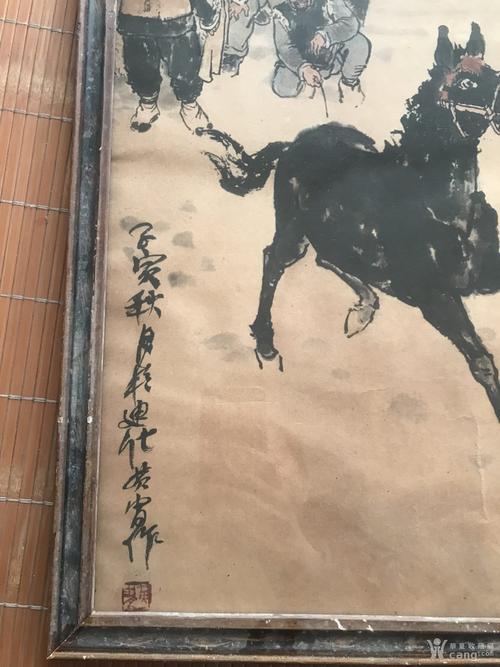 壬寅秋月於迪化黄胄作
華夏收藏網
cang.com